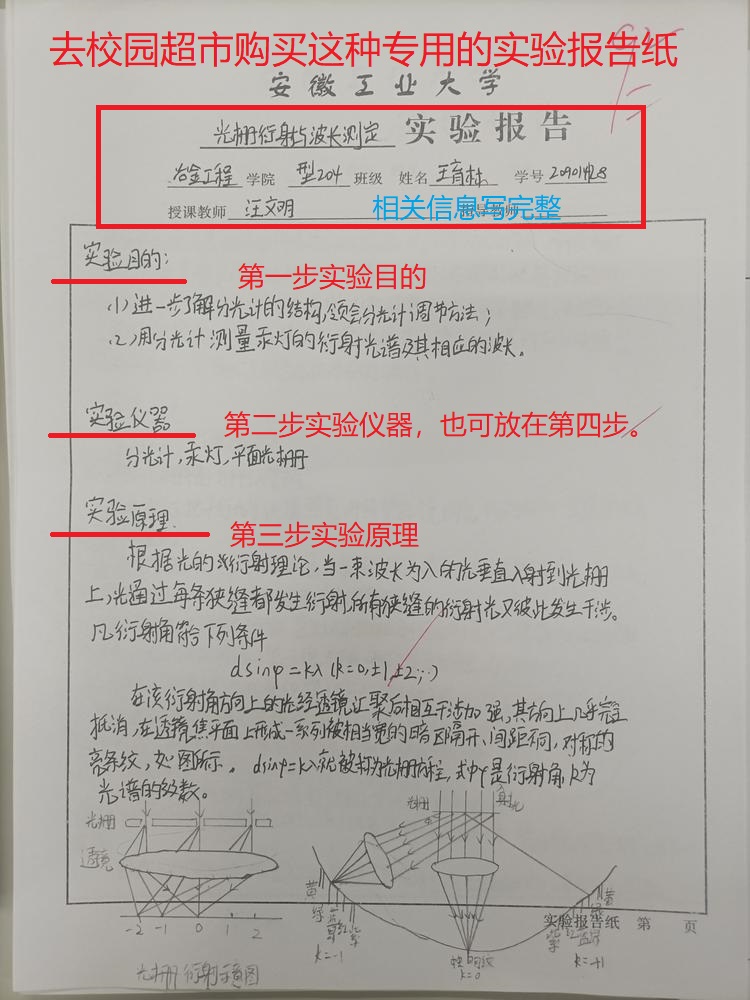 去校园超市购买这种专用的实验报告纸
安徽工业大学
光栅衍射与波长测定 实验报告
冶金工程 学院 型204 班级 姓名 王育栋 学号
授课教师 汪文明 指导教师
相关信息写完整
实验目的:
第一步实验目的
(1)进一步了解分光计的结构,领会分光计调节方法;
(2)用分光计测量汞灯的衍射光谱及其相应的波长。
实验仪器
第二步实验仪器，也可放在第四步。
分光计,汞灯,平面光栅
实验原理
第三步实验原理
根据光的衍射理论,当一束波长为入的光垂直入射到光栅
上,光通过每条狭缝都发生衍射,所有狭缝的衍射光又彼此发生干涉。
凡衍射角符合下列条件
dsinφ=kλ(k=0,±1,±2;··)
在该衍射角方向上的光经透镜汇聚后相互干涉加强,其方向上几乎完全
抵消,在透镜焦平面上形成一系列被相当宽的暗区隔开、间距不同,对称的
亮条纹,如图所示。dsinφ=kλ就被称为光栅方程,式中φ是衍射角,k为
光谱的级数。
光栅
透镜
-2 -1 0 1 2
光栅衍射示意图
光栅 入射光
黄 绿 紫
k=-1
k=0
黄 绿 紫
k=+1
实验报告纸 第 页